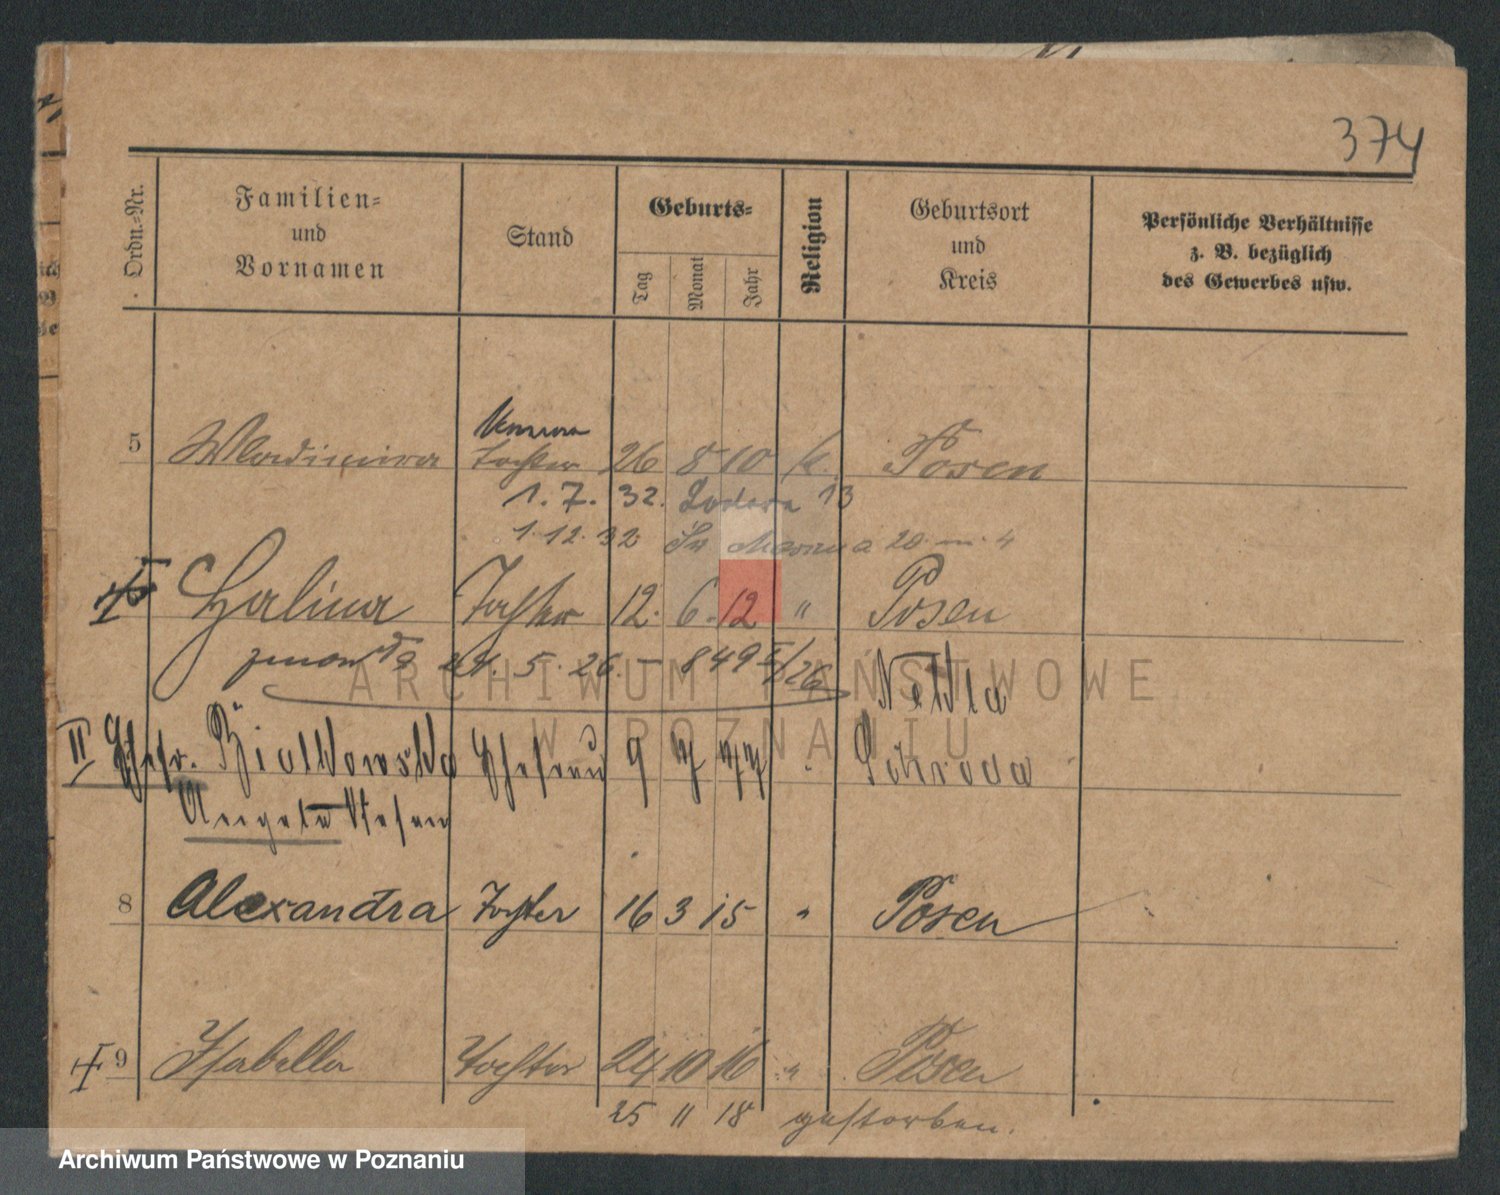 374
Ordn.-Nr.
Familien-
und
Vornamen
Stand
Geburts-
Tag
Monat
Jahr
Religion
Geburtsort
und
Kreis
Persönliche Verhältnisse
z. B. bezüglich
des Gewerbes usw.
5 Wladimira Tochter 26 8 10 k. Posen
1. 7. 32. 13
1. 12. 32 20 m. 4
Halina Tochter 12. 6. 12 " Posen
zmarła 24. 5. 26. – 849 /26
Nekla
II Ehefr. Ziolkowska Ehefrau 9 7 77 Schroda
Angela
8 Alexandra Tochter 16 3 15 " Posen
9 Isabella Tochter 24 10 16 " Posen
25 11 18 gestorben.
ARCHIWUM PAŃSTWOWE
W POZNANIU
Archiwum Państwowe w Poznaniu